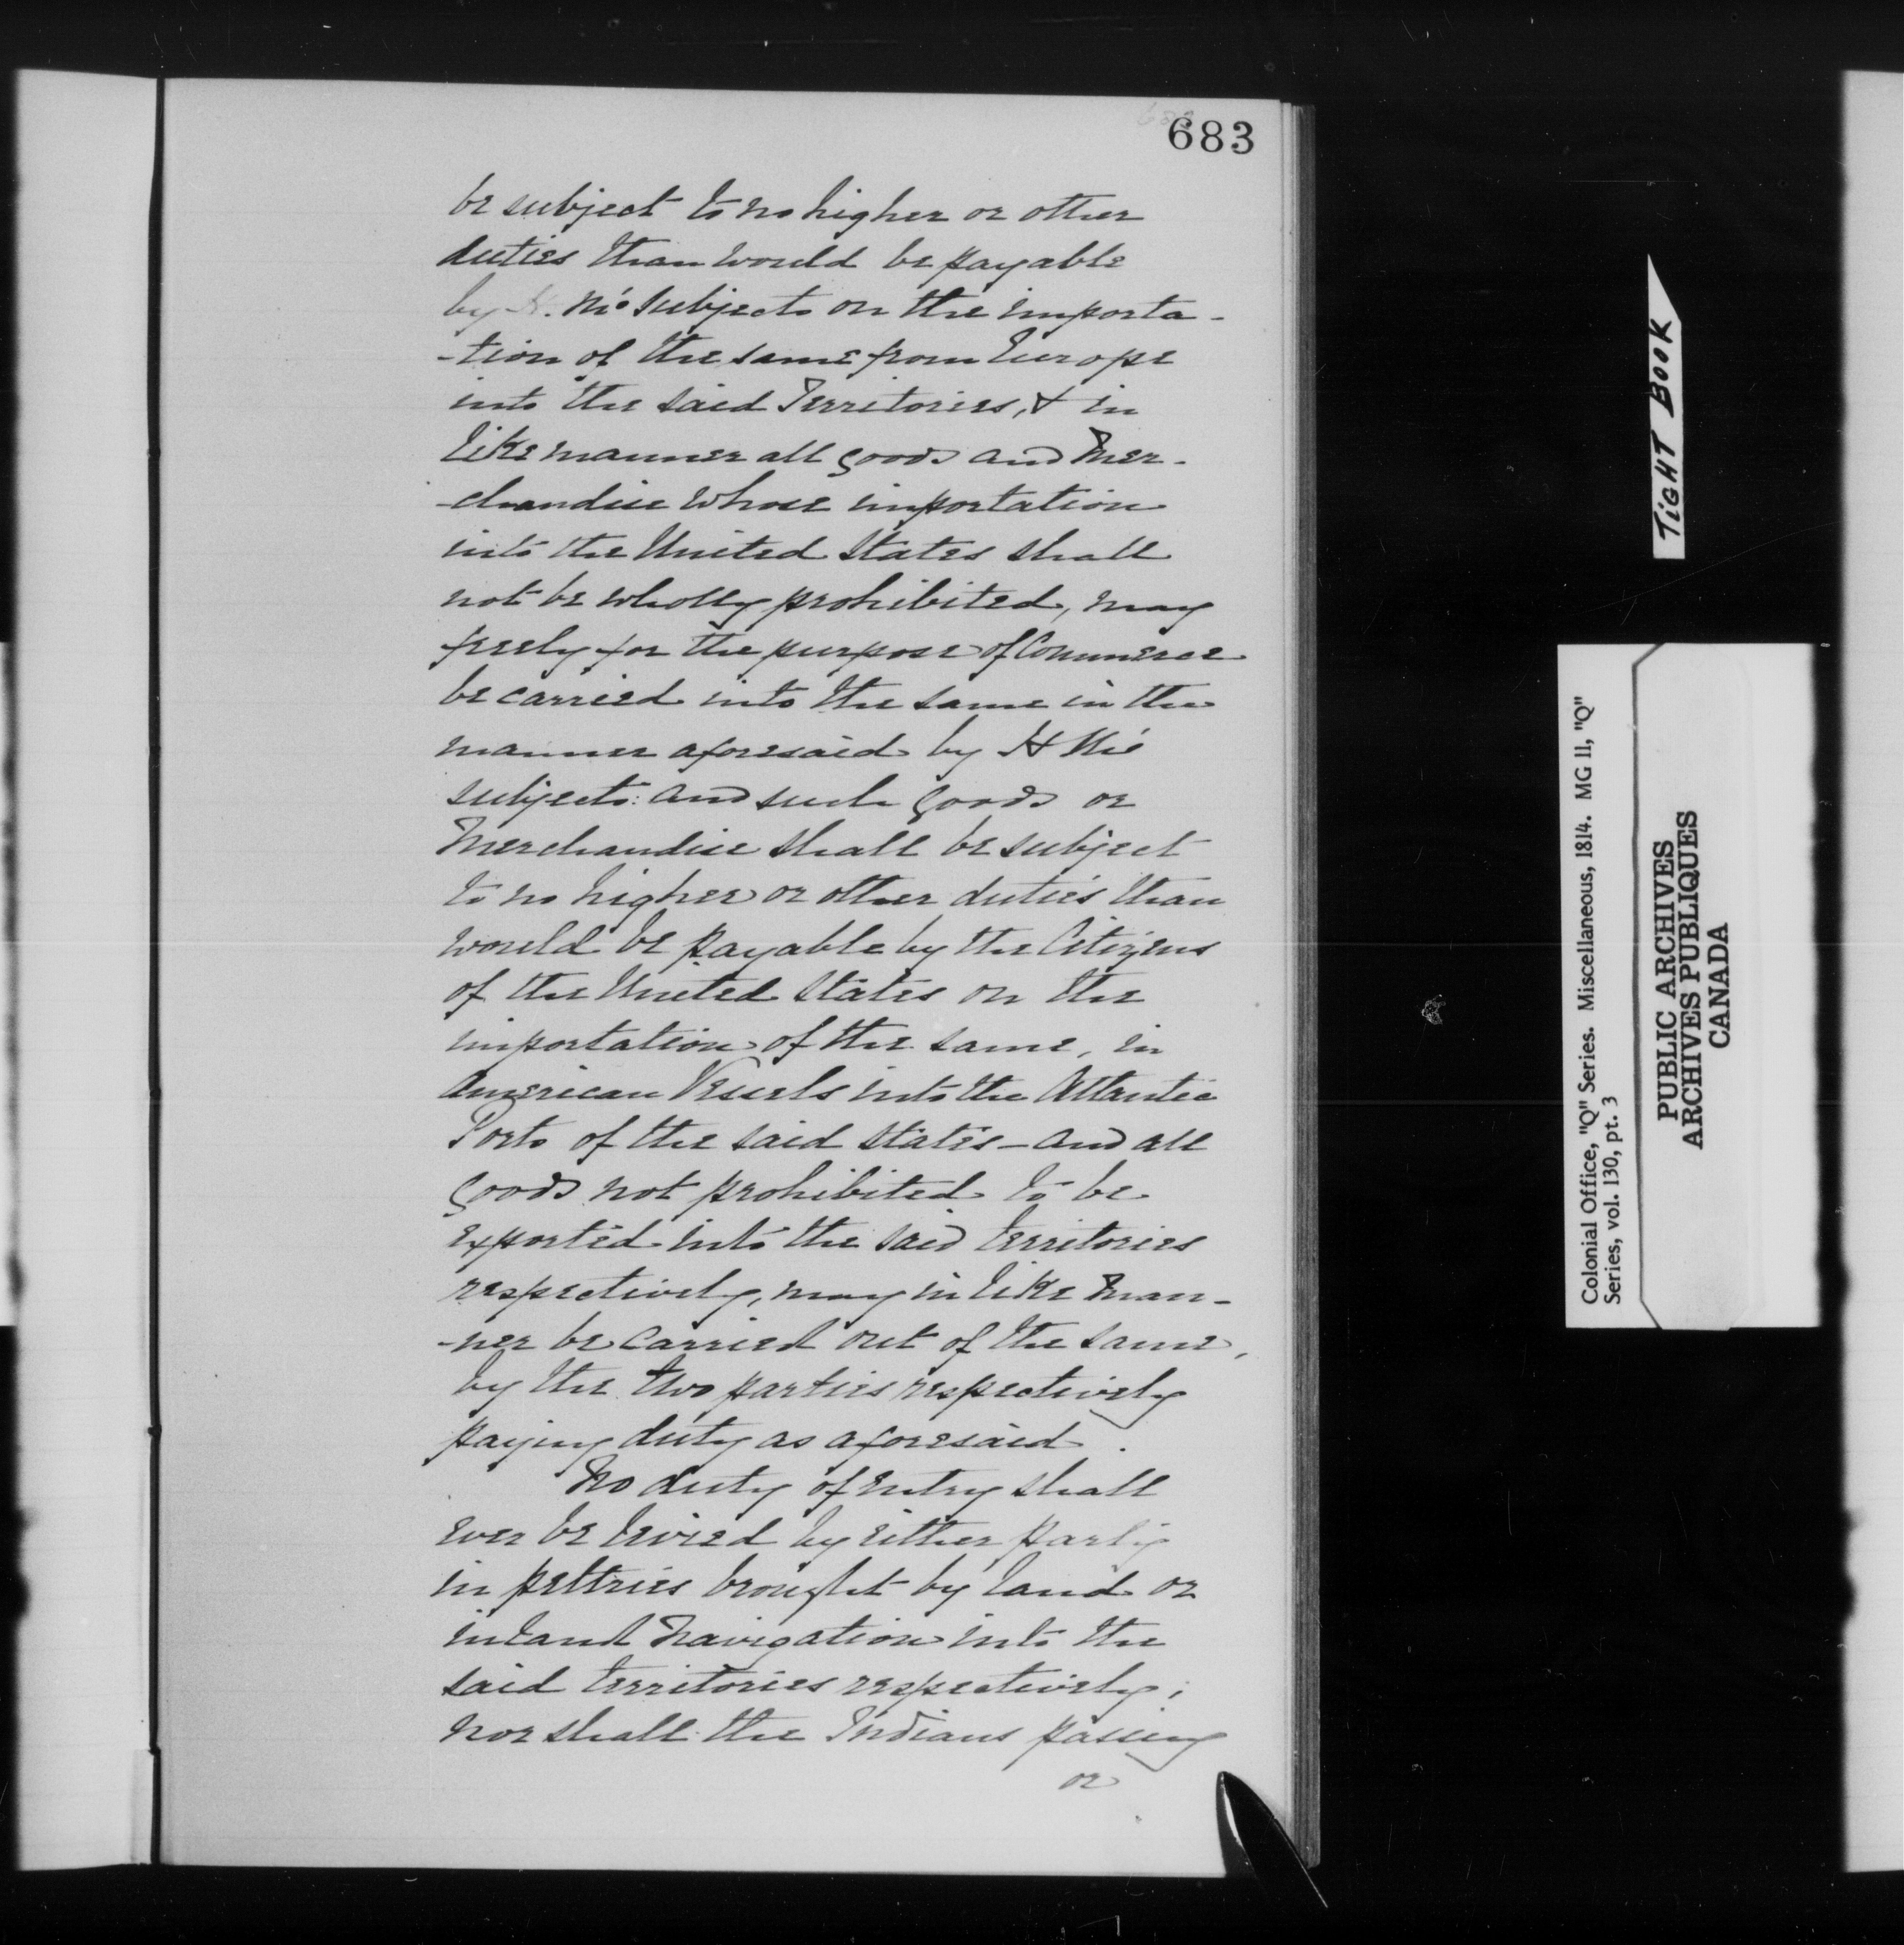 683
be subject to no higher or other
duties than would be payable
by H. M's subjects on the importa-
-tion of the same from Europe
into the said Territories, & in
like manner all goods and Mer-
-chandise whose importation
into the United States shall
not be wholly prohibited, may
freely for the purpose of Commerce
be carried into the same in the
manner aforesaid by H M's
subjects: and such goods or
Merchandise shall be subject
to no higher or other duties than
would be payable by the Citizens
of the United States on the
importation of the same, in
American Vessels into the Atlantic
Ports of the said States - and all
goods not prohibited to be
exported into the said territories
respectively, may in like man-
-ner be carried out of the same,
by the two parties respectively
paying duty as aforesaid.
No duty of entry shall
ever be levied by either party
in peltries brought by land or
inland navigation into the
said territories respectively;
nor shall the Indians passing
or
TIGHT BOOK
Colonial Office, "Q" Series. Miscellaneous, 1814. MG 11, "Q"
Series, vol. 130, pt. 3
PUBLIC ARCHIVES
ARCHIVES PUBLIQUES
CANADA